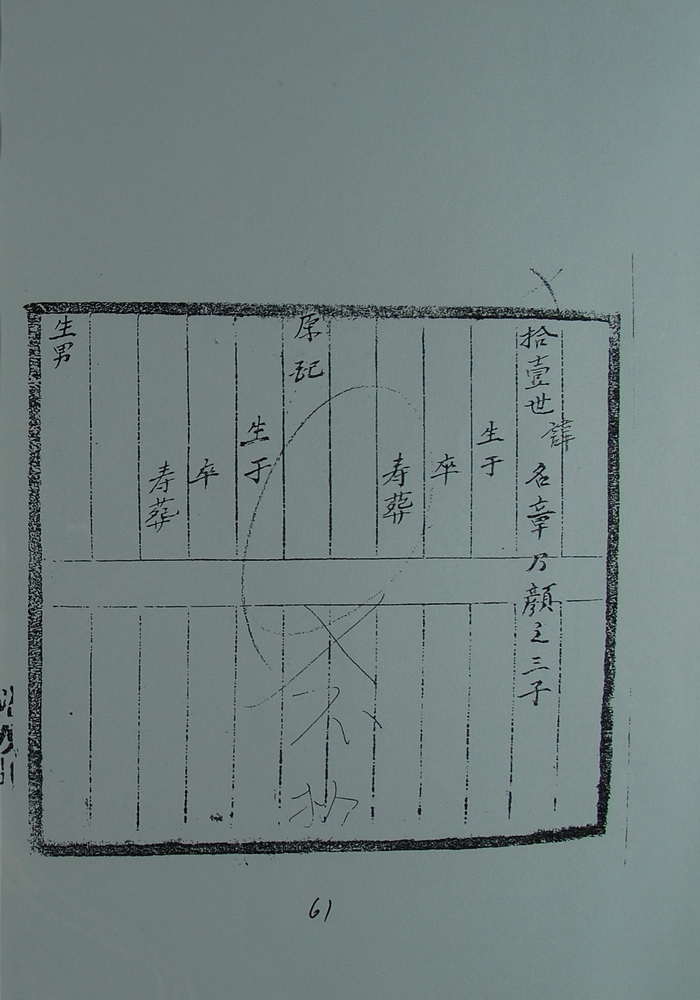 拾壹世 諱 名章乃顏之三子
生于
卒
寿葬
原配
生于
卒
寿葬
生男
不抄
61